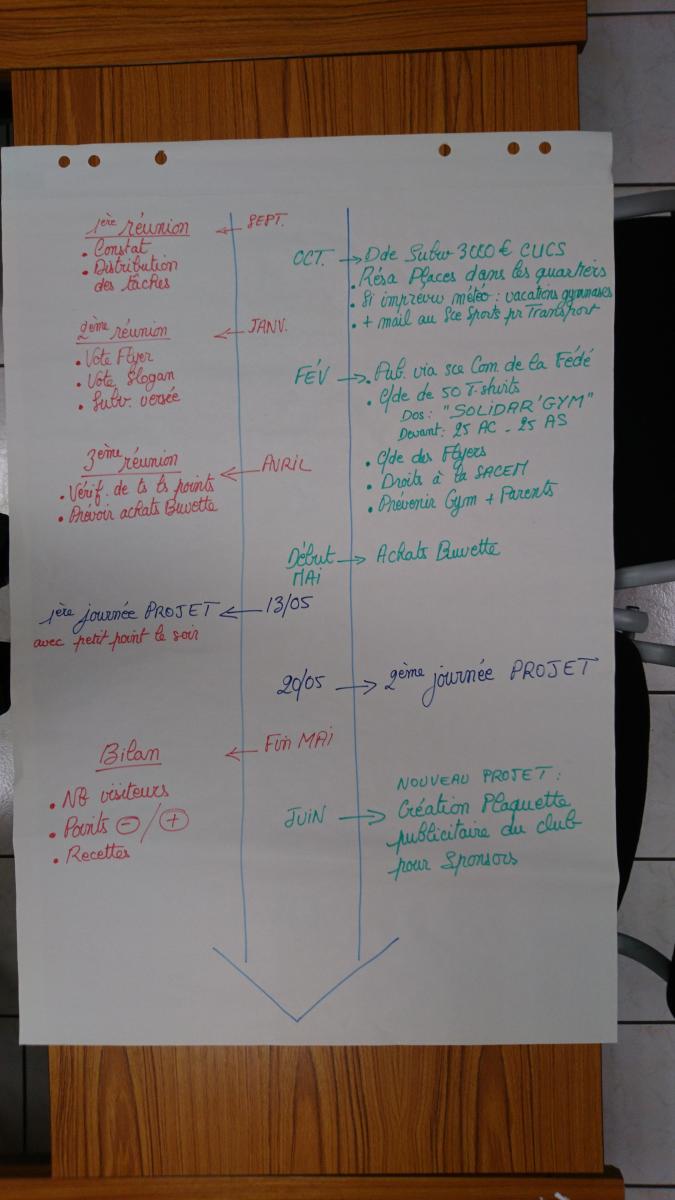 1ère réunion
• Constat
• Distribution
des tâches
← SEPT.
OCT. → Dde Subv 3000 € CUCS
• Résa Places dans les quartiers
• Si imprevu météo : vacations gymnases
• + mail au Sce Sports pr Transport
2ème réunion
• Vote Flyer
• Vote Slogan
• Subv. versée
← JANV.
FÉV → • Pub. via sce Com. de la Fédé
• C/de de 50 T-shirts
Dos : "SOLIDAR'GYM"
Devant : 25 AC - 25 AS
• C/de des Flyers
• Droits à la SACEM
• Prévenir Gym + Parents
3ème réunion
• Vérif. de ts ts points
• Prévoir achats Buvette
← AVRIL
Début MAI → Achats Buvette
1ère journée PROJET ← 13/05
avec petit point le soir
20/05 → 2ème journée PROJET
Bilan
• NB visiteurs
• Points ⊖ / ⊕
• Recettes
← Fin MAI
JUIN → NOUVEAU PROJET :
Création Plaquette
publicitaire du club
pour Sponsors